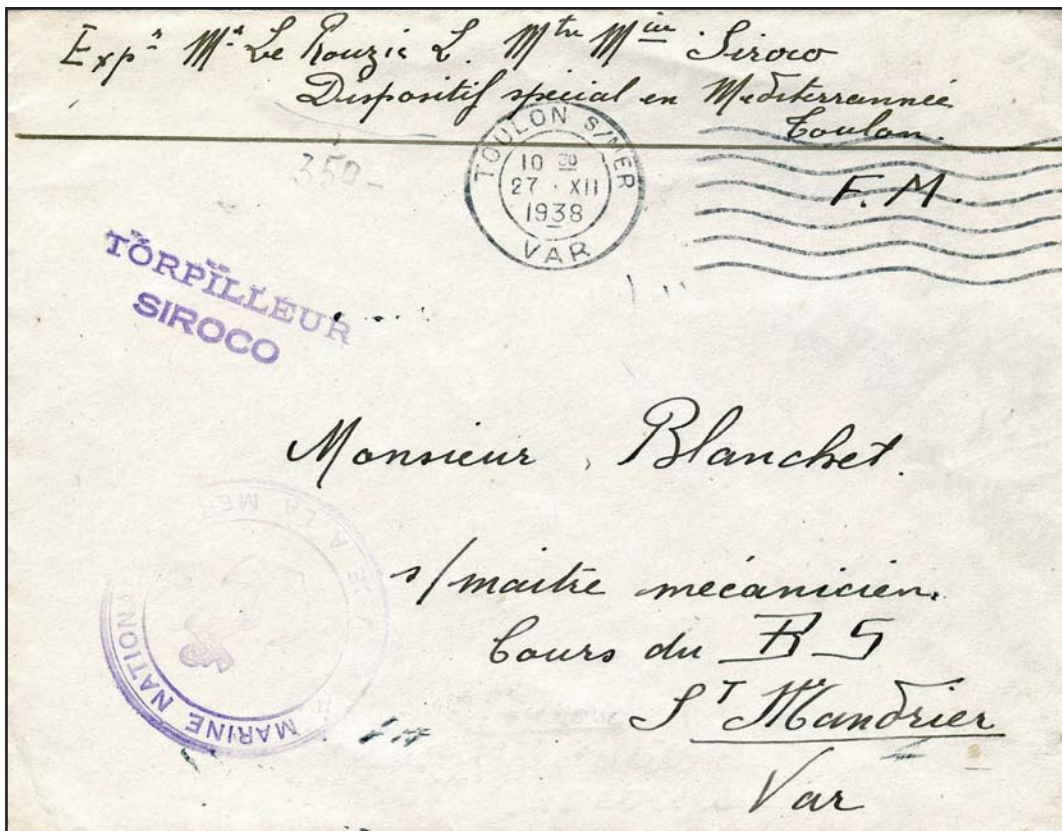 Expr Mr Le Rouzic L. Mtre Mcien Siroco
Dispositif spécial en Méditerrannée
Toulon.
350-
TOULON S/MER
10 30
27 · XII
1938
VAR
F. M.
TORPILLEUR
SIROCO
Monsieur Blanchet.
s/maitre mécanicien.
Cours du B S
ST Mandrier
Var
MARINE NATIONA
A LA MER